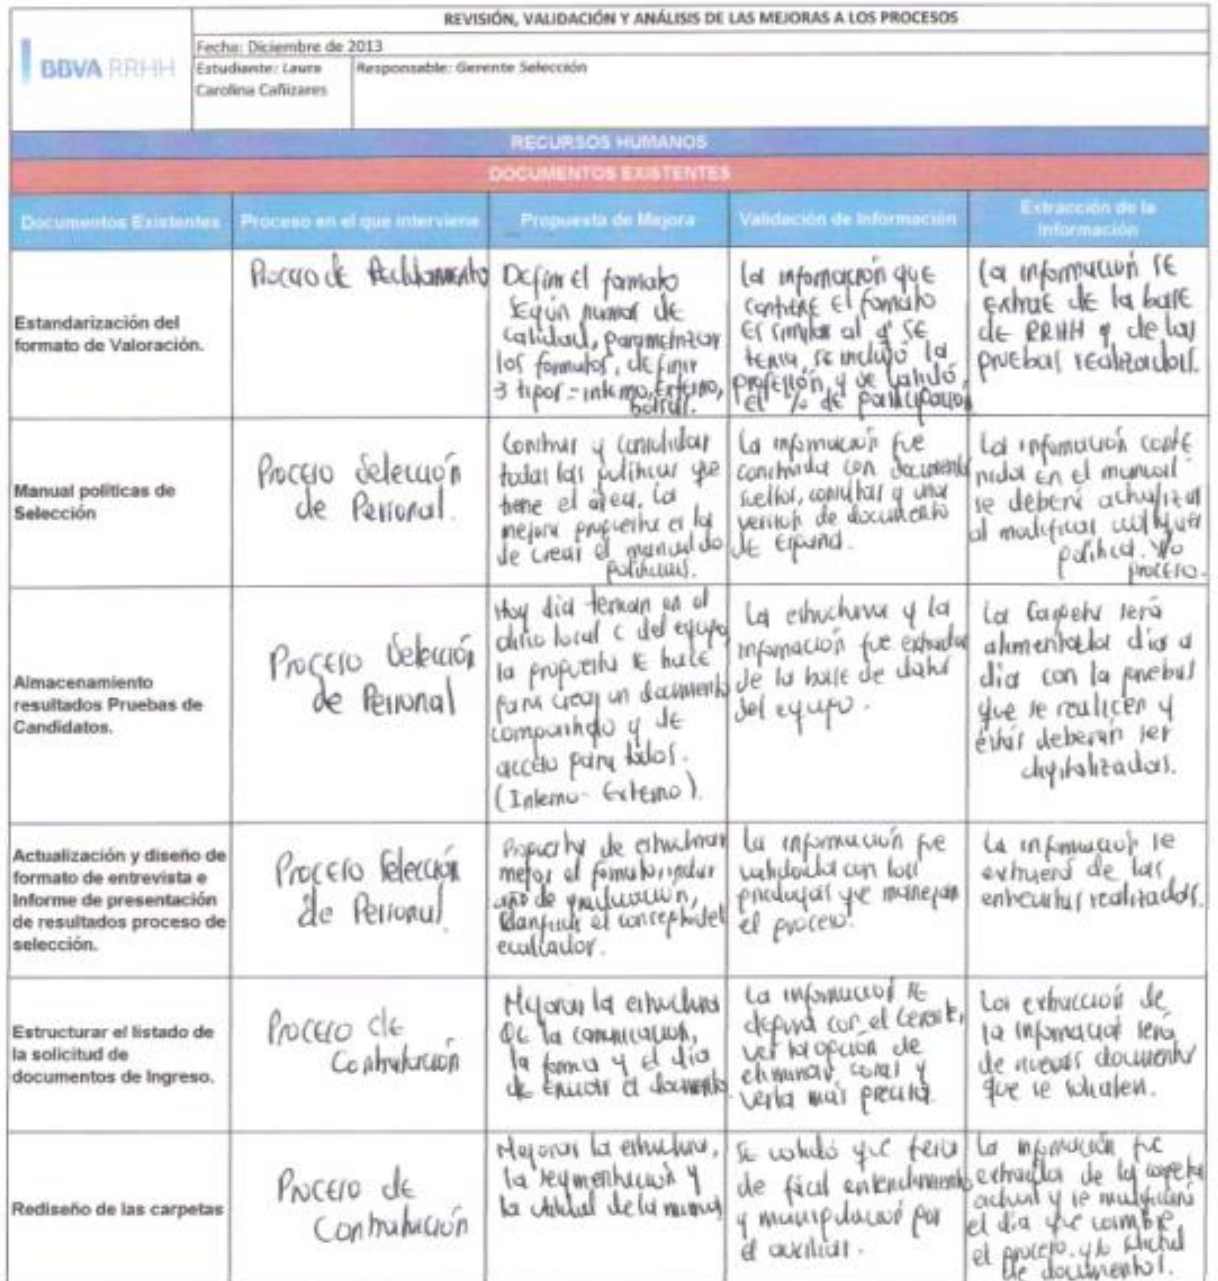 REVISIÓN, VALIDACIÓN Y ANÁLISIS DE LAS MEJORAS A LOS PROCESOS
BBVA RRHH
Fecha: Diciembre de 2013
Estudiante: Laura
Carolina Cañizares
Responsable: Gerente Selección
RECURSOS HUMANOS
DOCUMENTOS EXISTENTES
Documentos Existentes
Proceso en el que interviene
Propuesta de Mejora
Validación de Información
Extracción de la
Información
Estandarización del
formato de Valoración.
Proceso de
Definir el formato
según normas de
calidad, parametrizar
los formatos, definir
3 tipos - interno, Externo,
La información que
contiene el formato
es similar al q' se
tenía, se incluyó la
profesión, y se validó
el % de participación
La información se
extrae de la base
de RRHH y de las
pruebas realizadas.
Manual políticas de
Selección
Proceso Selección
de Personal.
Construir y consolidar
todas las políticas que
tiene el área. La
mejora propuesta es la
de crear el manual de
políticas.
La información fue
construida con documentos
sueltos, consultas y una
versión de documento
de España.
La información conte
nida en el manual
se deberá actualizar
al modificar cualquier
política. Y/o
proceso.
Almacenamiento
resultados Pruebas de
Candidatos.
Proceso Selección
de Personal
Hoy día tenían en el
disco local c del equipo
la propuesta se hace
para crear un documento
compartido y de
acceso para todos.
(Interno - Externo).
La estructura y la
información fue extraída
de la base de datos
del equipo.
La Carpeta será
alimentada día a
día con la pruebas
que se realicen y
éstas deberán ser
digitalizadas.
Actualización y diseño de
formato de entrevista e
Informe de presentación
de resultados proceso de
selección.
Proceso Selección
de Personal.
Propuesta de estructurar
mejor el formato, incluir
año de graduación,
el concepto del
evaluador.
La información fue
validada con los
que manejan
el proceso.
La información se
extraerá de las
realizadas.
Estructurar el listado de
la solicitud de
documentos de Ingreso.
Proceso de
Contratación
Mejorar la estructura
de la comunicación,
la forma y el día
de enviar el documento.
La información se
con el Gerente,
ver la opción de
eliminar cosas y
verla más precisa.
La extracción de
la información será
de nuevos documentos
que se soliciten.
Rediseño de las carpetas
Proceso de
Contratación
Mejorar la estructura,
la segmentación y
la utilidad de la misma
Se validó que fuera
de fácil entendimiento
y manipulación por
el auxiliar.
La información fue
extraída de la carpeta
actual y se modificará
el día que cambie
el proceso. y/o solicitud
de documentos.